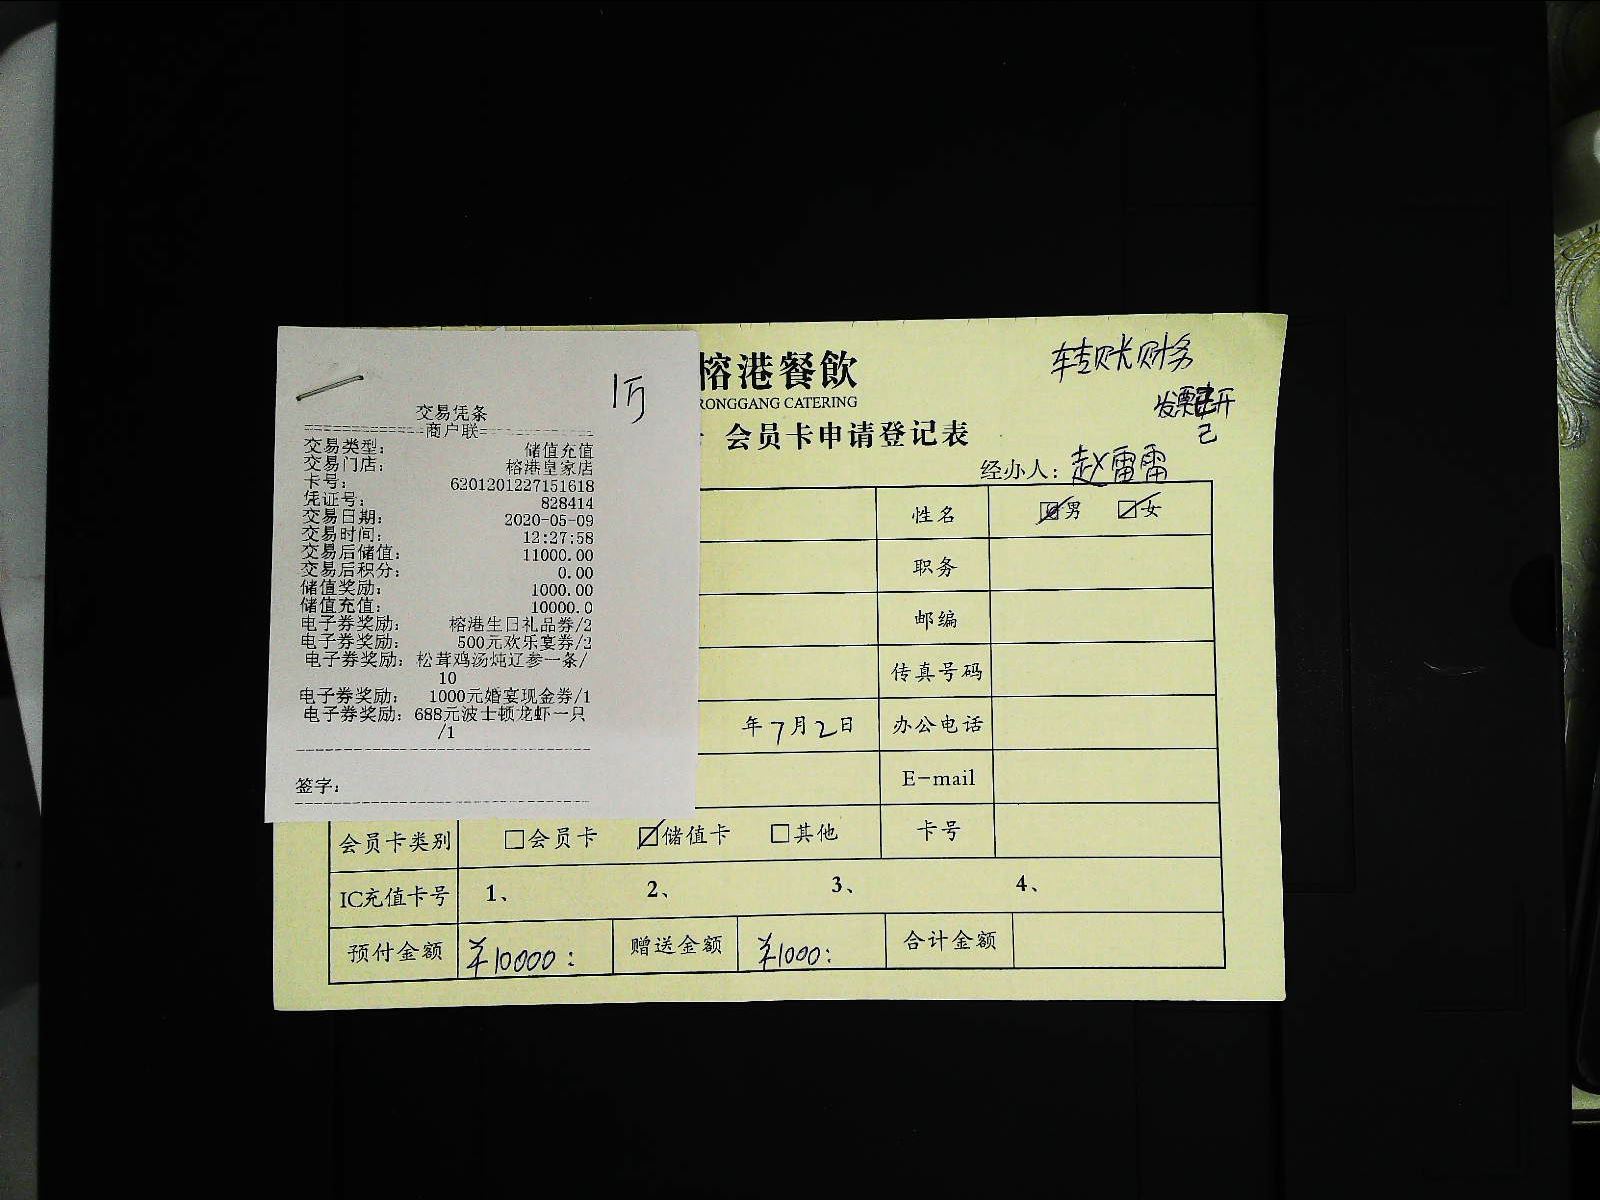 1万
交易凭条
=============商户联=============
交易类型： 储值充值
交易门店： 榕港皇家店
卡号： 6201201227151618
凭证号： 828414
交易日期： 2020-05-09
交易时间： 12:27:58
交易后储值： 11000.00
交易后积分： 0.00
储值奖励： 1000.00
储值充值： 10000.0
电子券奖励： 榕港生日礼品券/2
电子券奖励： 500元欢乐宴券/2
电子券奖励：松茸鸡汤炖辽参一条/
10
电子券奖励： 1000元婚宴现金券/1
电子券奖励：688元波士顿龙虾一只
/1
签字：
榕港餐飲
RONGGANG CATERING
会员卡申请登记表
转账财务
发票已开
己
经办人：赵雷雷
性名 ☑男 ☑女
职务
邮编
传真号码
年7月2日 办公电话
E-mail
会员卡类别 □会员卡 ☑储值卡 □其他 卡号
IC充值卡号 1、 2、 3、 4、
预付金额 ¥10000: 赠送金额 ¥1000: 合计金额